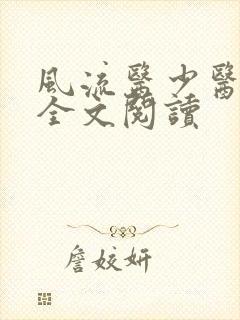 風流醫少醫
全文閱讀
詹姣妍